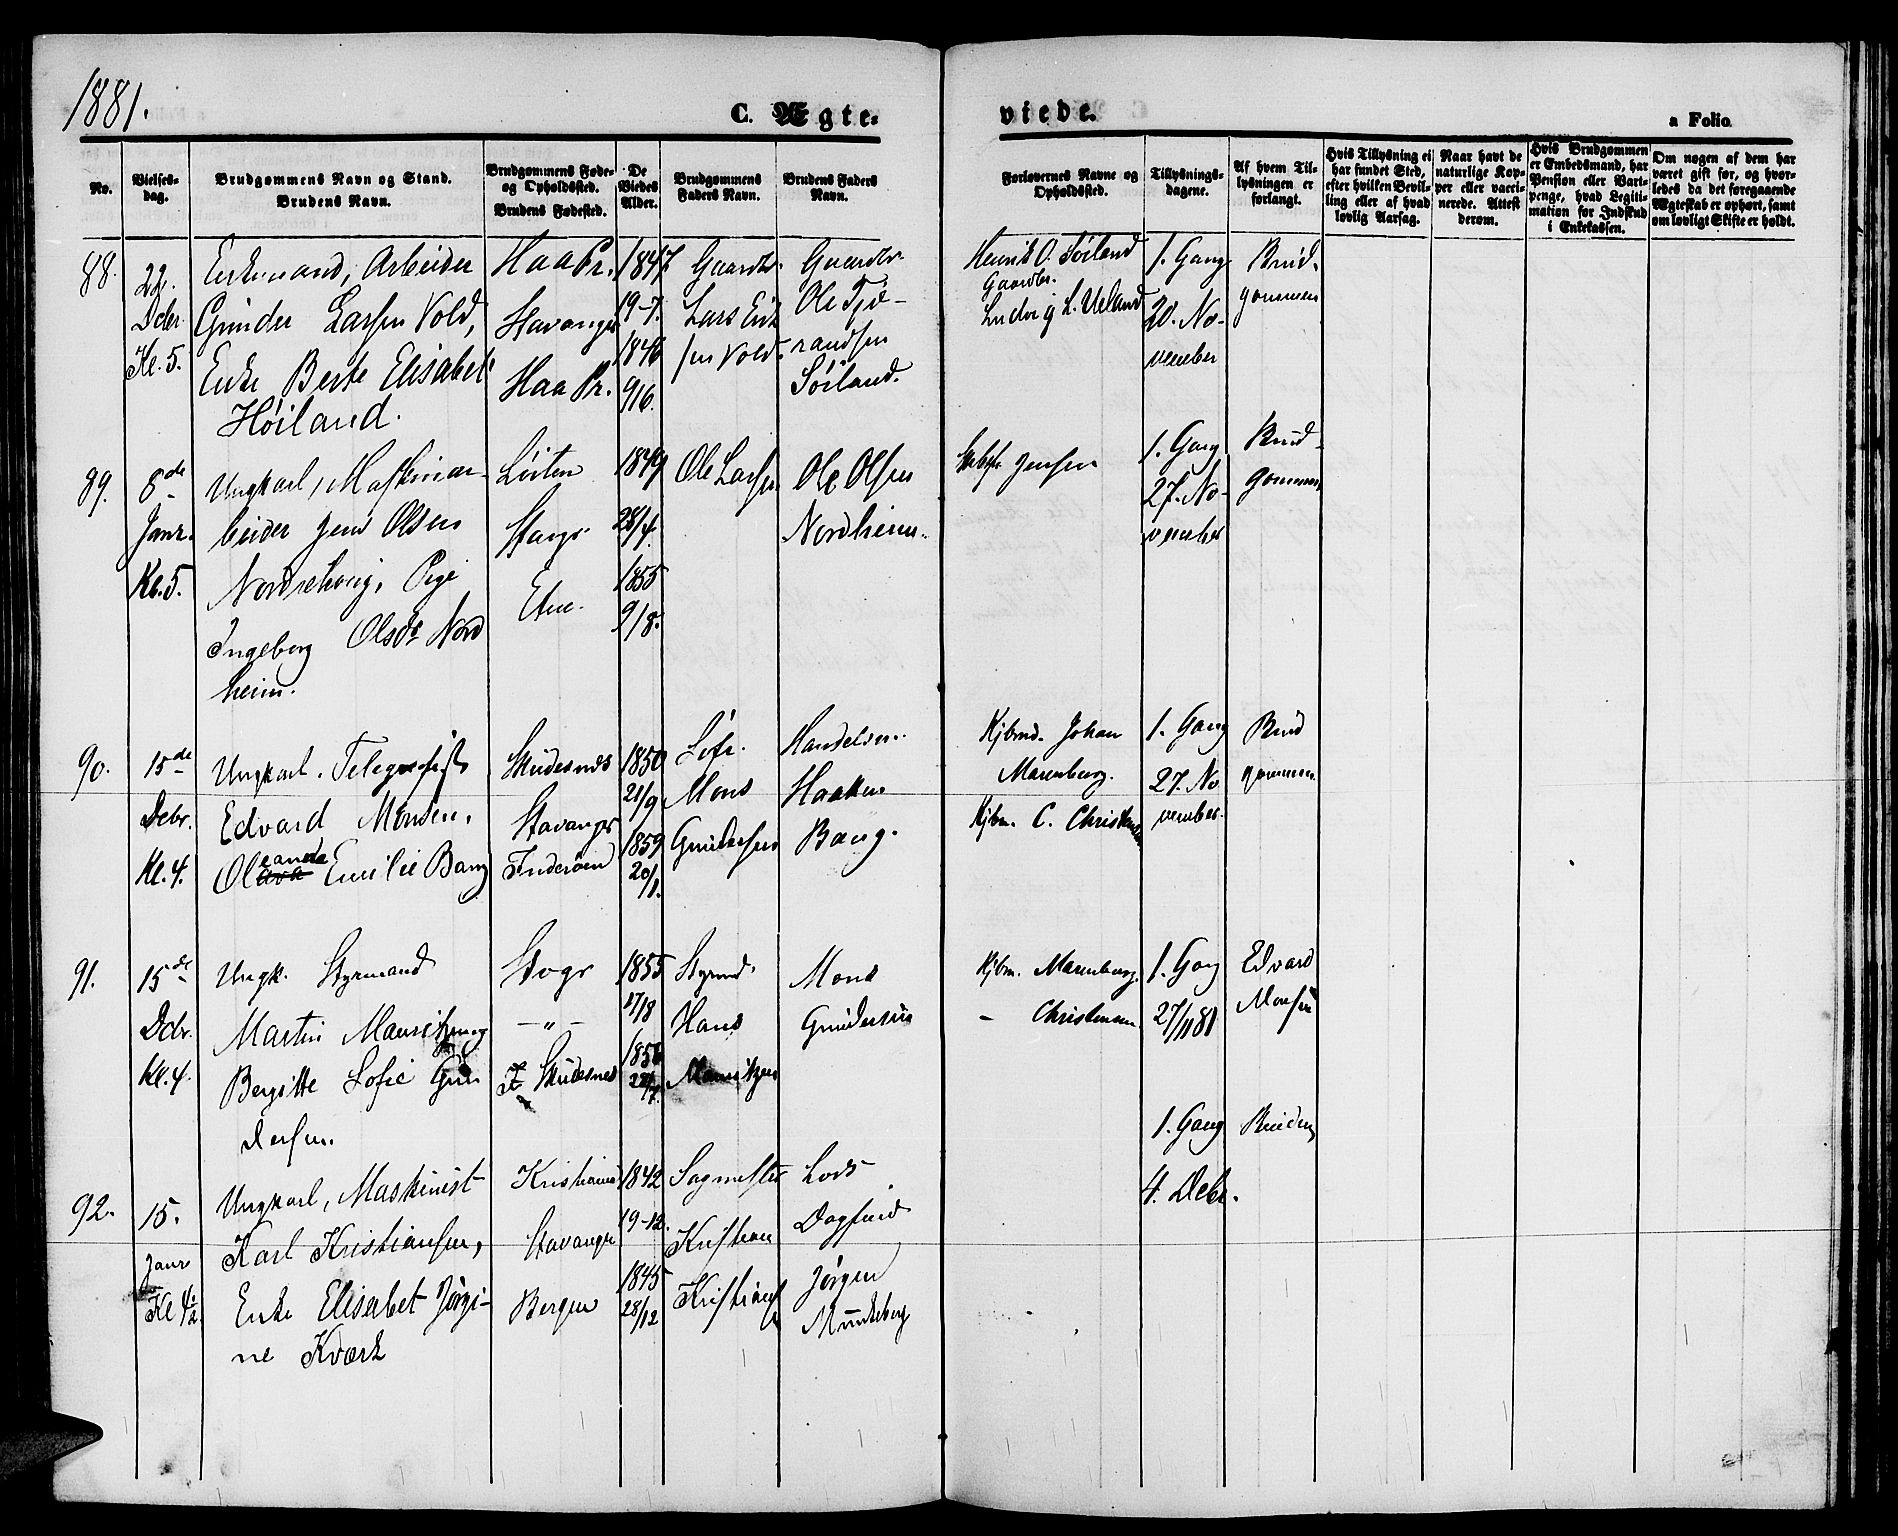 1881.
C. Ægte-
viede.
a Folio
No.
Vielses-
dag.
Brudgommens Navn og Stand.
Brudens Navn.
Brudgommens Føde-
og Opholdssted.
Brudens Fødested.
De
Viedes
Alder.
Brudgommens
Faders Navn.
Brudens Faders
Navn.
Forlovernes Navne og
Opholdssted.
Tillysnings-
dagene.
Af hvem Til-
lysningen er
forlangt.
Hvis Tillysning ei
har fundet Sted,
efter hvilken Bevil-
ling eller af hvad
lovlig Aarsag.
Naar havt de
naturlige Kop-
per eller vacci-
nerede. Attest
derom.
Hvis Brudgommen
er Embedsmand, har
Pension eller Vart-
penge, hvad Legiti-
mation for Indskud
i Enkekassen.
Om nogen af dem har
været gift før, og hvor-
ledes da det foregaaende
Ægteskab er ophørt, samt
om lovligt Skifte er holdt.
88.
22.
Dcbr.
Kl. 5.
Enkemand, Arbeider
Gunder Larsen Vold,
Enke Berte Elisabet
Høiland.
Haa Pr.
Stavanger
Haa Pr.
1847
19-7.
1846
9/6.
Gaardbr.
Lars Erik
sen Vold.
Gaardbr.
Ole Tjø-
randsen
Søiland.
Henrik O. Søiland
Gaardbr.
Ludvig L. Ueland
1. Gang
20. No-
vember
Brud-
gommen
89.
8de
Janr.
Kl. 5.
Ungkarl, Maskinar-
beider Jens Olsen
Nordrehoug, Pige
Ingeborg Olsdr Nord
heim.
Løiten
Stavgr
Etne.
1849
28/4.
1855
9/8.
Ole Larsen
Ole Olsen
Nordheim.
Jensen
1. Gang
27. No-
vember
Brud-
gommen
90.
15de
Debr.
Kl. 4.
Ungkarl. Telegrafist
Edvard Monsen,
Oleanda Emilie Bang
Skudesnes
Stavanger
Inderøen
1850
21/9
1859
20/1.
Sofr.
Mons
Gundersen
Handelsm.
Haaken
Bang.
Kjbmd. Johan
Marenburg.
Kjbm. C. Christensen
1. Gang
27. No
vember.
Brud
gommen
91.
15de
Dcbr.
Kl. 4.
Ungk. Styrmand
Martin Mauritzen
Bergitte Sofie Gun
dersen.
Stvgr
— " —
Skudesnes
1855
17/8
1856
22/7.
Styrmd.
Hans
Mauritzen
Mons
Gundersen
Kjbm. Marenburg.
— Christensen
1. Gang
27/11 81
Edvard
Monsen
92.
15.
Janr
Kl 4 1/2.
Ungkarl, Maskinist
Karl Kristiansen,
Enke Elisabet Jørgi-
ne Kværk
Kristiania
Stavanger
Bergen
1842
19-12.
1845
28/12
Sagmester
Kristian
Kristians
Lods
Dagfind
Jørgen
Munkeberg
1. Gang
4. Debr.
Bruden